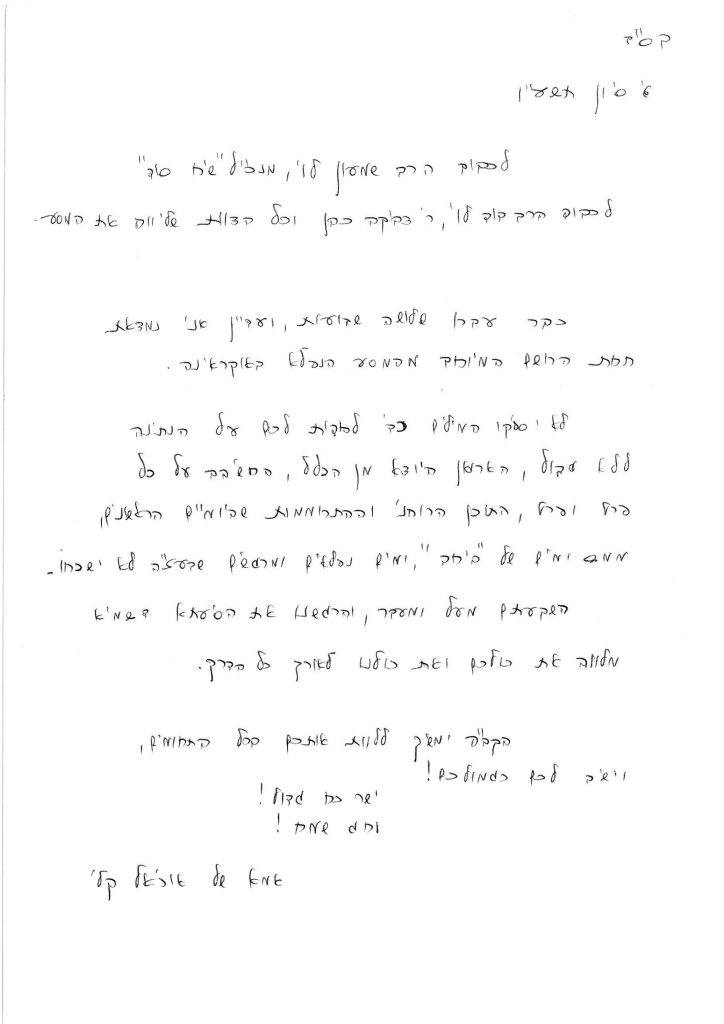 בס"ד
א' סיון תשע"ו
לכבוד הרב שמעון לוי, מנכ"ל "שיח סוד"
לכבוד הרב דוד לוי, ר' צביקה כהן וכל הצוות שליווה את המסע.
כבר עברו שלושה שבועות, ועדיין אני נמצאת
תחת הרושם המיוחד מהמסע הנפלא באוקראינה.
לא יספיקו המילים כדי להודות לכם על הנתינה
ללא גבול, הארגון היוצא מן הכלל, החשיבה על כל
פרט ופרט, התוכן הרוחני וההתרוממות שבימיים הראשונים,
חמשה ימים של "ביחד", ימים נעלים ומרגשים שבעז"ה לא ישכחו.
השקעתם מעל ומעבר, והרגשנו את הסיעתא דשמיא
מלווה את כולכם ואת כולנו לאורך כל הדרך.
הקב"ה ימשיך ללוות אתכם בכל התחומים,
וישיב לכם כגמולכם!
ישר כח גדול!
וחג שמח!
אמא של אוריאל קלי